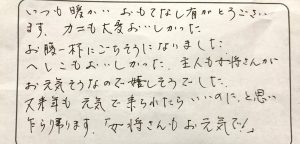 いつも暖かい おもてなし有がとうござい
ます。カニも大変おいしかった
お腹一杯にごちそうになりました。
へしこもおいしかった。主人も女将さんが
お元気そうなので嬉しそうでした。
又来年も元気で来られたらいいのに、と思い
乍ら帰ります。「女将さんもお元気で!」